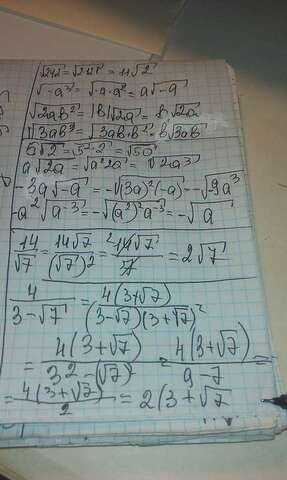 √242 = √2·121 = 11√2
√-a³ = √-a·a² = a√-a
√2ab² = |b|√2a = b√2a
√3ab³ = √3ab·b² = b√3ab
5√2 = √5²·2 = √50
a√2a = √a²2a = √2a³
-3a√-a = -√(3a)²(-a) = -√9a³
-a²√a⁻³ = -√(a²)²a⁻³ = -√a
14/√7 = 14√7/(√7)² = 14√7/7 = 2√7
4/(3-√7) = 4(3+√7)/(3-√7)(3+√7)
= 4(3+√7)/3²-(√7)² = 4(3+√7)/9-7 =
= 4(3+√7)/2 = 2(3+√7